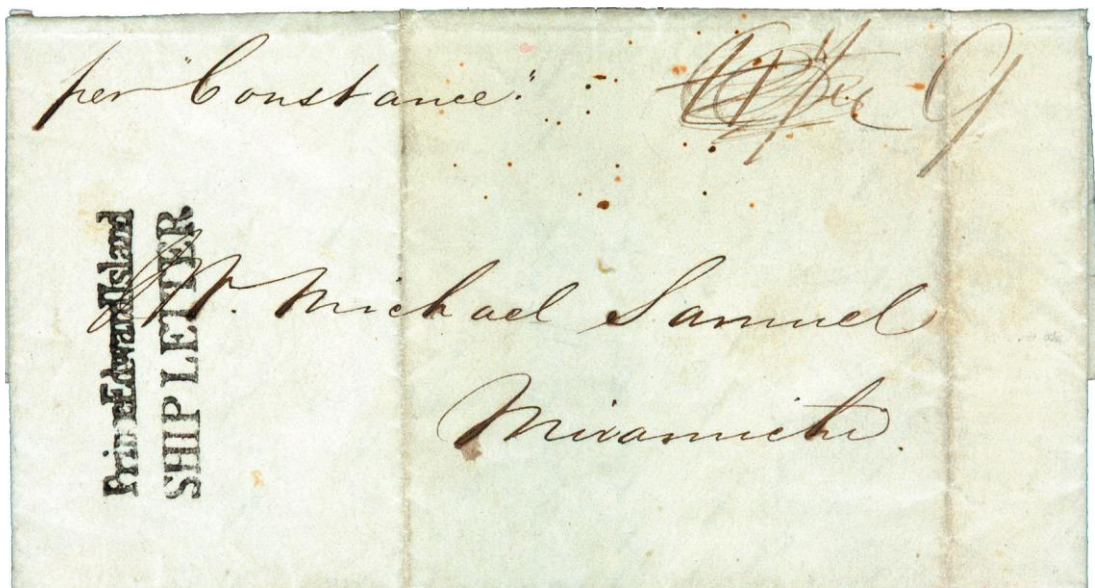 per "Constance"
9
Prince Edward Island
SHIP LETTER
Mr. Michael Samuel
Miramichi.